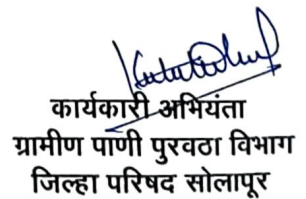 कार्यकारी अभियंता
ग्रामीण पाणी पुरवठा विभाग
जिल्हा परिषद सोलापूर